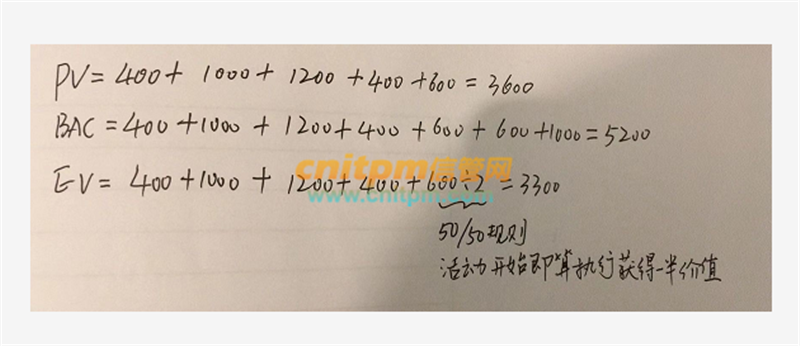 PV = 400 + 1000 + 1200 + 400 + 600 = 3600
BAC = 400 + 1000 + 1200 + 400 + 600 + 600 + 1000 = 5200
EV = 400 + 1000 + 1200 + 400 + 600 ÷ 2 = 3300
cnitpm信管网
www.cnitpm.com
50/50规则
活动开始即算执行获得一半价值